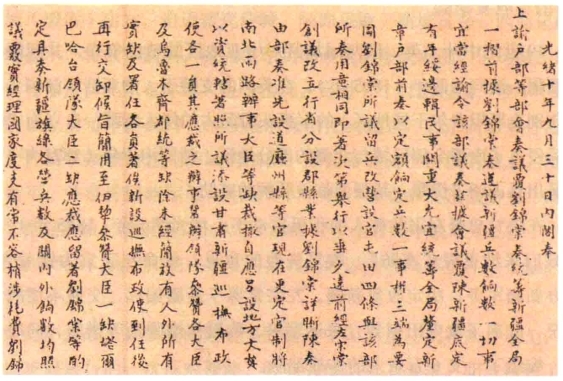 光緒十年九月三十日內閣奉
上諭戶部等部會奏議覆劉錦棠奏統籌新疆全局
一摺前據劉錦棠奏遵議新疆兵數餉數一切事
宜當經諭令該部議奏茲據會議覆陳新疆底定
有年綏邊輯民事關重大允宜統籌全局釐定新
章戶部前奏以定額餉定兵數一事權三端為要
圖劉錦棠所議留兵改營設官屯田四條與該部
所奏用意相同即著次第舉行以垂久遠前經左宗棠
創議改立行省分設郡縣業據劉錦棠詳晰陳奏
由部奏准先設道廳州縣等官現在更定官制將
南北兩路辦事大臣等缺裁撤自應另設地方大員
以資統轄著照所議添設甘肅新疆巡撫布政
使各一員其應裁之辦事幫辦領隊參贊各大臣
及烏魯木齊都統等缺除未經簡放有人外所有
實缺及署任各員著俟新設巡撫布政使到任後
再行交卸候旨簡用至伊犁參贊大臣一缺塔爾
巴哈台領隊大臣二缺應裁應留著劉錦棠等酌
定具奏新疆旗綠各營兵數及關內外餉數均照
議覈實經理國家度支有常不容稍涉耗費劉錦